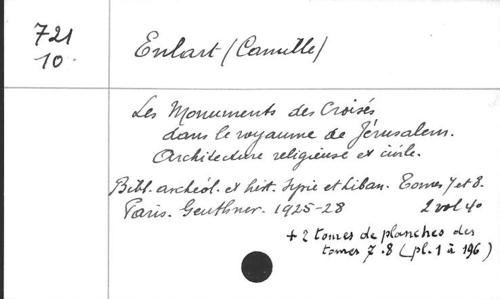 721
10.
Enlart (Camille)
Les Monuments des Croisés
dans le royaume de Jérusalem.
Architecture religieuse et civile.
Bibl. archéol. et hist. Syrie et Liban. Tomes 7 et 8.
Paris. Geuthner. 1925-28 2 vol 4o
+ 2 tomes de planches des
tomes 7.8 (pl. 1 à 196)